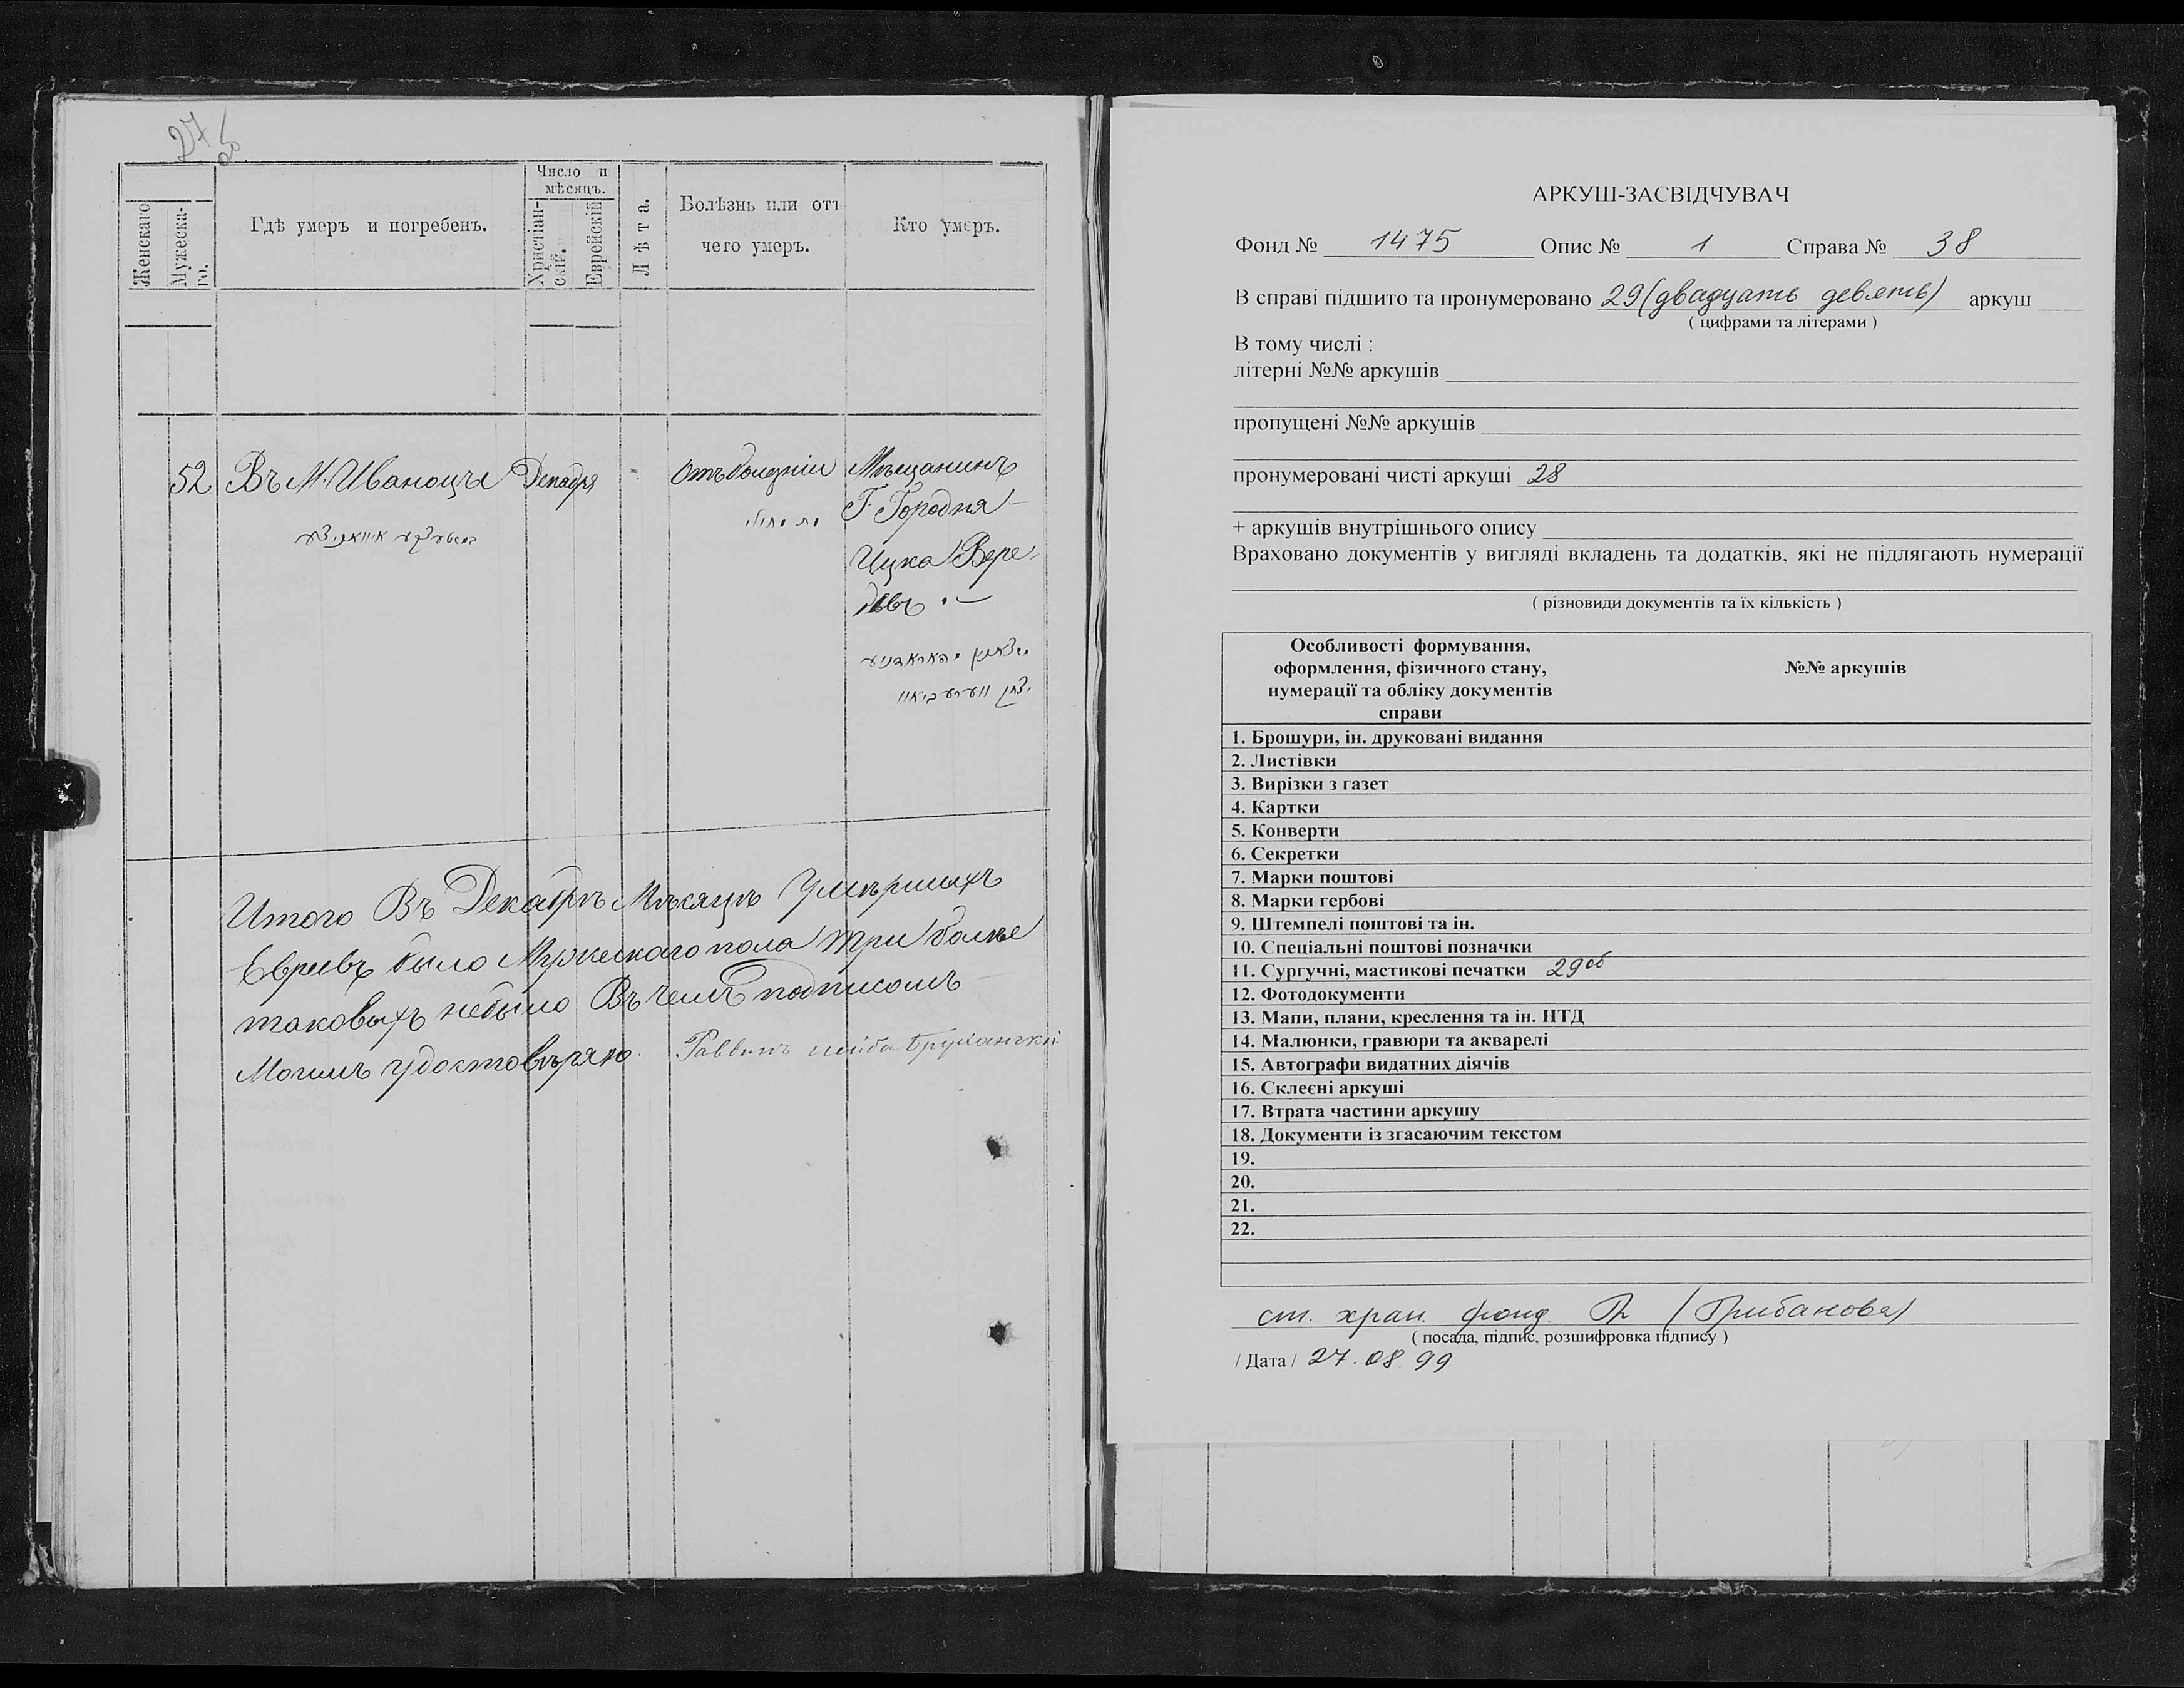 27
об
Женскаго
Мужеска-
го.
Гдѣ умеръ и погребенъ.
Число и
мѣсяцъ.
Христіан-
скій.
Еврейскій
Лѣта.
Болѣзнь или отъ
чего умеръ.
Кто умеръ.
52
Въ М. Иваноцы
Декабря
Отъ болезніи
Мѣщанинъ
Г. Городня
Ицка Вере
Итого Въ Декабрѣ Мѣсяцѣ Умѣршихъ
Евреевъ было Мужескаго пола три болѣе
таковыхъ небыло Въ чемъ подписомъ
Моимъ удостовѣряю.
Раввинъ
АРКУШ-ЗАСВІДЧУВАЧ
Фонд № 1475 Опис № 1 Справа № 38
В справі підшито та пронумеровано 29 (двадцать девять) аркуш
( цифрами та літерами )
В тому числі :
літерні №№ аркушів
пропущені №№ аркушів
пронумеровані чисті аркуші 28
+ аркушів внутрішнього опису
Враховано документів у вигляді вкладень та додатків, які не підлягають нумерації
( різновиди документів та їх кількість )
Особливості формування,
оформлення, фізичного стану,
нумерації та обліку документів
справи
№№ аркушів
1. Брошури, ін. друковані видання
2. Листівки
3. Вирізки з газет
4. Картки
5. Конверти
6. Секретки
7. Марки поштові
8. Марки гербові
9. Штемпелі поштові та ін.
10. Спеціальні поштові позначки
11. Сургучні, мастикові печатки 29об
12. Фотодокументи
13. Мапи, плани, креслення та ін. НТД
14. Малюнки, гравюри та акварелі
15. Автографи видатних діячів
16. Склеєні аркуші
17. Втрата частини аркушу
18. Документи із згасаючим текстом
19.
20.
21.
22.
ст. хран. фонд. (Грибанова)
( посада, підпис, розшифровка підпису )
/ Дата / 27.08.99